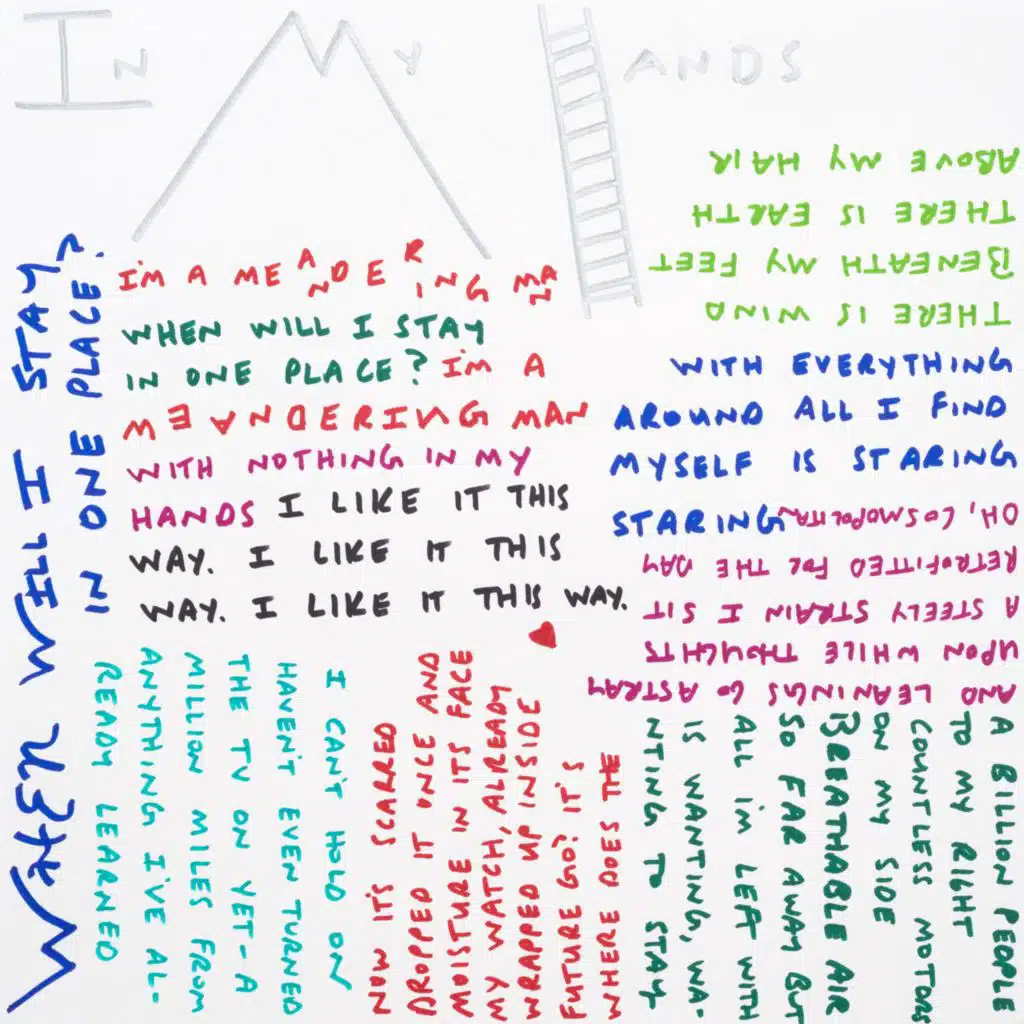 IN MY HANDS
WHEN WILL I STAY
IN ONE PLACE?
I'M A MEANDERING MAN
WHEN WILL I STAY
IN ONE PLACE? I'M A
MEANDERING MAN
WITH NOTHING IN MY
HANDS I LIKE IT THIS
WAY. I LIKE IT THIS
WAY. I LIKE IT THIS WAY.
ABOVE MY HAIR
THERE IS EARTH
BENEATH MY FEET
THERE IS WIND
WITH EVERYTHING
AROUND ALL I FIND
MYSELF IS STARING
STARING
OH, COSMOPOLITAN
RETROFITTED FOR THE DAY
A STEELY STRAIN I SIT
UPON WHILE THOUGHTS
AND LEANINGS GO ASTRAY
A BILLION PEOPLE
TO MY RIGHT
COUNTLESS MOTORS
ON MY SIDE
BREATHABLE AIR
SO FAR AWAY BUT
ALL IM LEFT WITH
IS WANTING, WA-
NTING TO STAY
WHERE DOES THE
FUTURE GO? IT'S
WRAPPED UP INSIDE
MY WATCH, ALREADY
MOISTURE IN ITS FACE
DROPPED IT ONCE AND
NOW IT'S SCARRED
I CAN'T HOLD ON
HAVEN'T EVEN TURNED
THE TV ON YET-A
MILLION MILES FROM
ANYTHING I'VE AL-
READY LEARNED